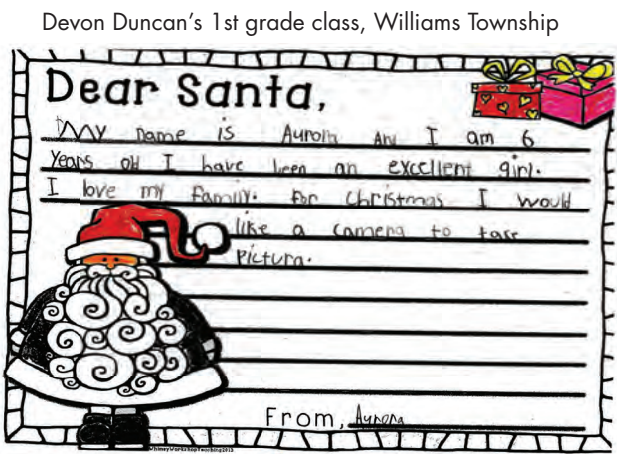 Devon Duncan's 1st grade class, Williams Township
Dear Santa,
My name is Aurora and I am 6
Years old I have been an excellent girl.
I love my family. For Christmas I would
like a camera to take
Pictura.
From, Aurora
WhimsyWorkshopTeaching2013